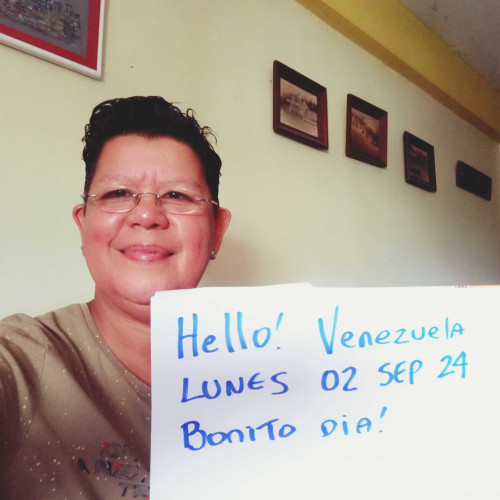 Hello! Venezuela
LUNES 02 SEP 24
BONITO DIA!